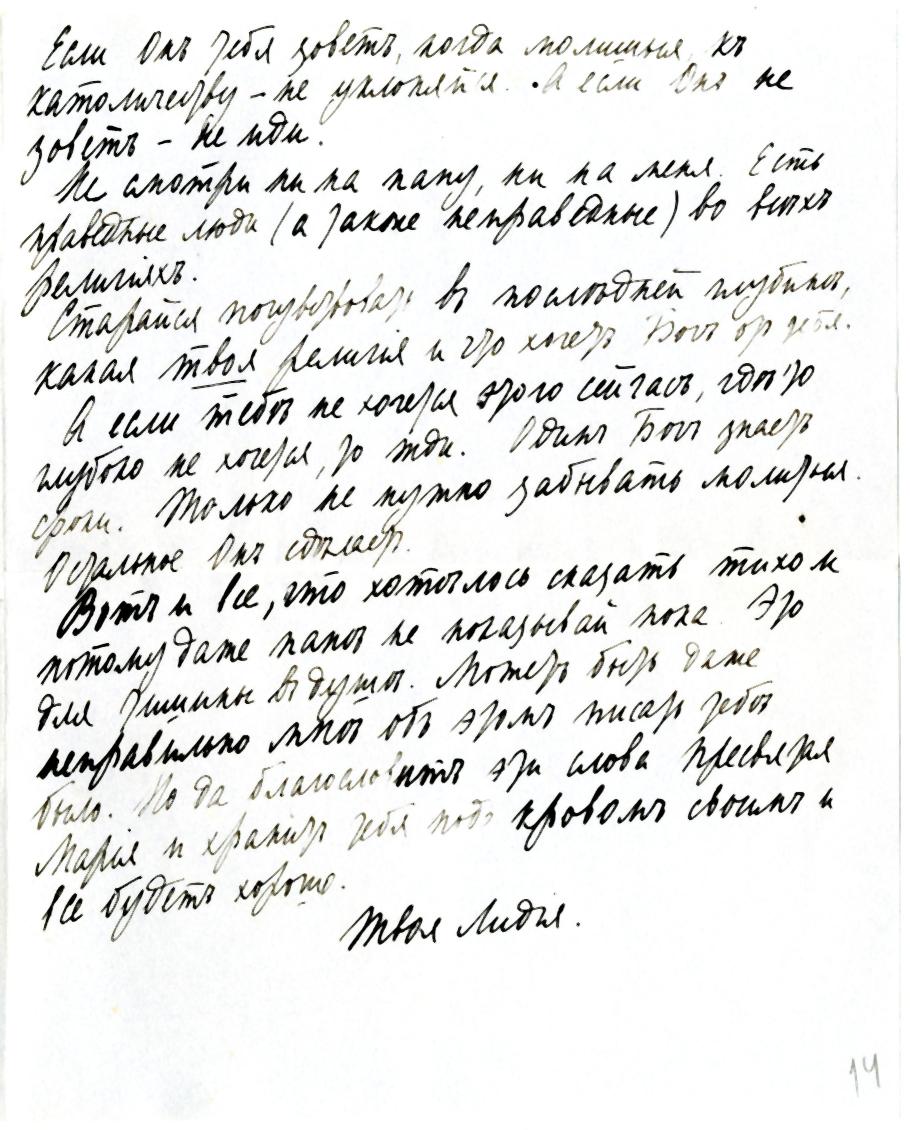 Если Онъ тебя зоветъ, когда молишься, къ
католичеству – не уклоняйся. А если Онъ не
зоветъ – не иди.
Не смотри ни на папу, ни на меня. Есть
праведные люди (а также неправедные) во всѣхъ
религіяхъ.
Старайся почувствовать въ послѣдней глубинѣ,
какая твоя религія и что хочетъ Богъ отъ тебя.
А если тебѣ не хочется этого сейчасъ, гдѣ-то
глубоко не хочется, то жди. Одинъ Богъ знаетъ
сроки. Только не нужно забывать молиться.
Остальное Онъ сдѣлаетъ.
Вотъ и все, что хотѣлось сказать тихо и
потому даже папѣ не показывай пока. Это
для тишины въ душѣ. Можетъ быть даже
неправильно мнѣ объ этомъ писать тебѣ
было. Но да благословитъ эти слова Пресвятая
Марія и хранитъ тебя подъ кровомъ своимъ и
все будетъ хорошо.
Твоя Лидія.
14